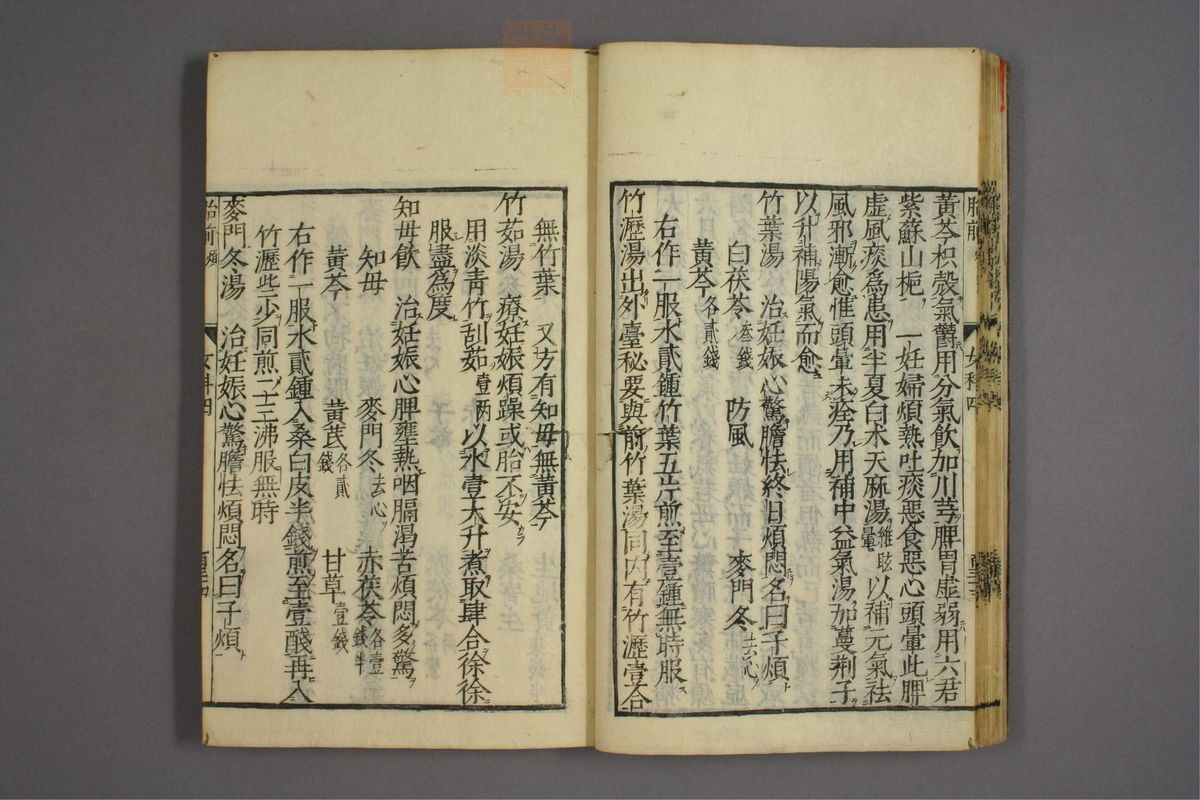 黃芩枳殼氣欝用分氣飲加川芎脾胃虛弱用六君
紫蘇山梔　一妊婦煩熱吐痰惡食惡心頭暈此脾
虛風痰爲患用半夏白朮天麻湯以補元氣祛
風邪漸愈惟頭暈未痊乃用補中益氣湯加蔓荆子
以升補陽氣而愈
竹葉湯　治妊娠心驚膽怯終日煩悶名曰子煩
白茯苓叁錢　防風　麥門冬去心
黃芩各貳錢
右作一服水貳鍾竹葉五片煎至壹鍾無時服
竹瀝湯出外臺秘要與前竹葉湯同内有竹瀝壹合
胎前
女科四
無竹葉　又方有知毋無黃芩
竹茹湯　療妊娠煩躁或胎不安
用淡靑竹刮茹壹两以水壹大升煮取肆合徐徐
服盡爲度
知毋飲　治妊娠心脾壅熱咽膈渴苦煩悶多驚
知毋　麥門冬去心　赤茯苓各壹錢半
黃芩　黃芪各貳錢　甘草壹錢
右作一服水貳鍾入桑白皮半錢煎至壹醆再入
竹瀝些少同煎一二三沸服無時
麥門冬湯　治妊娠心驚膽怯煩悶名曰子煩
胎前
女科四